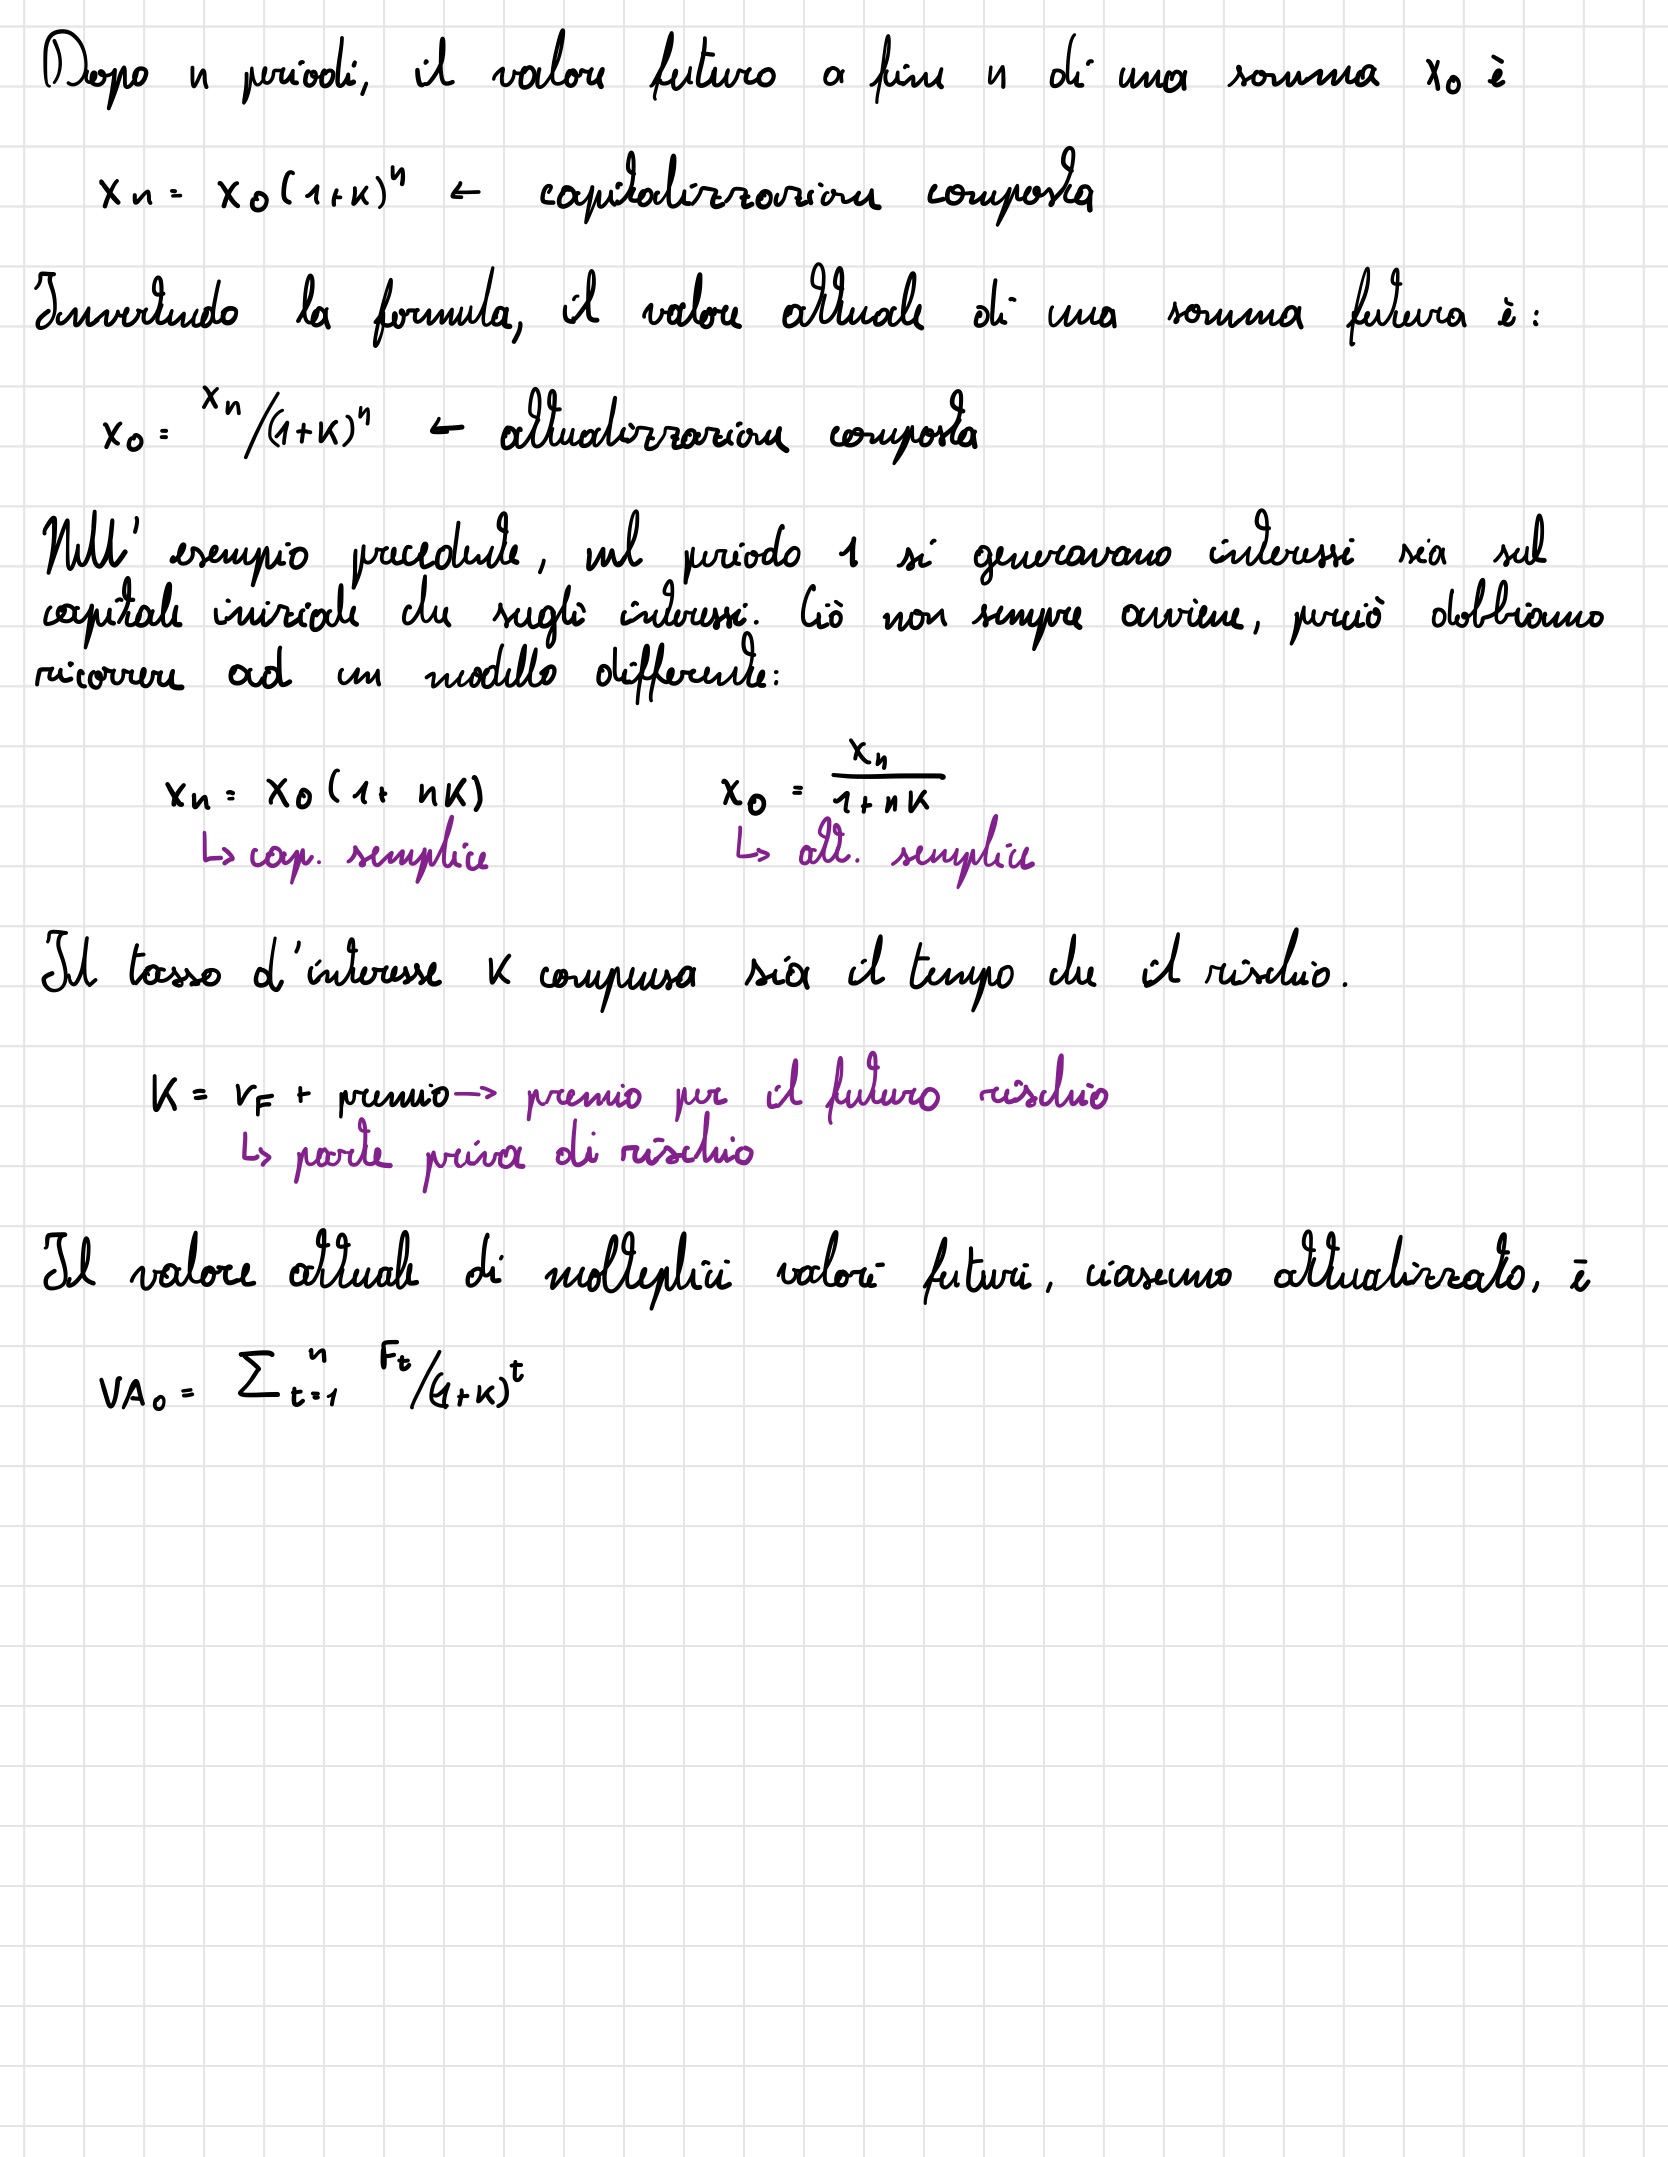 Dopo n periodi, il valore futuro a fine n di una somma x₀ è
xₙ = x₀(1+K)ⁿ ← capitalizzazione composta
Invertendo la formula, il valore attuale di una somma futura è:
x₀ = xₙ/(1+K)ⁿ ← attualizzazione composta
Nell' esempio precedente, nel periodo 1 si generavano interessi sia sul
capitale iniziale che sugli interessi. Ciò non sempre avviene, perciò dobbiamo
ricorrere ad un modello differente:
xₙ = x₀ (1 + nK) x₀ = xₙ/(1 + nK)
↳ cap. semplice ↳ att. semplice
Il tasso d'interesse K compensa sia il tempo che il rischio.
K = r_F + premio → premio per il futuro rischio
↳ parte priva di rischio
Il valore attuale di molteplici valori futuri, ciascuno attualizzato, è
VA₀ = ∑ₜ₌₁ⁿ Fₜ/(1+K)ᵗ